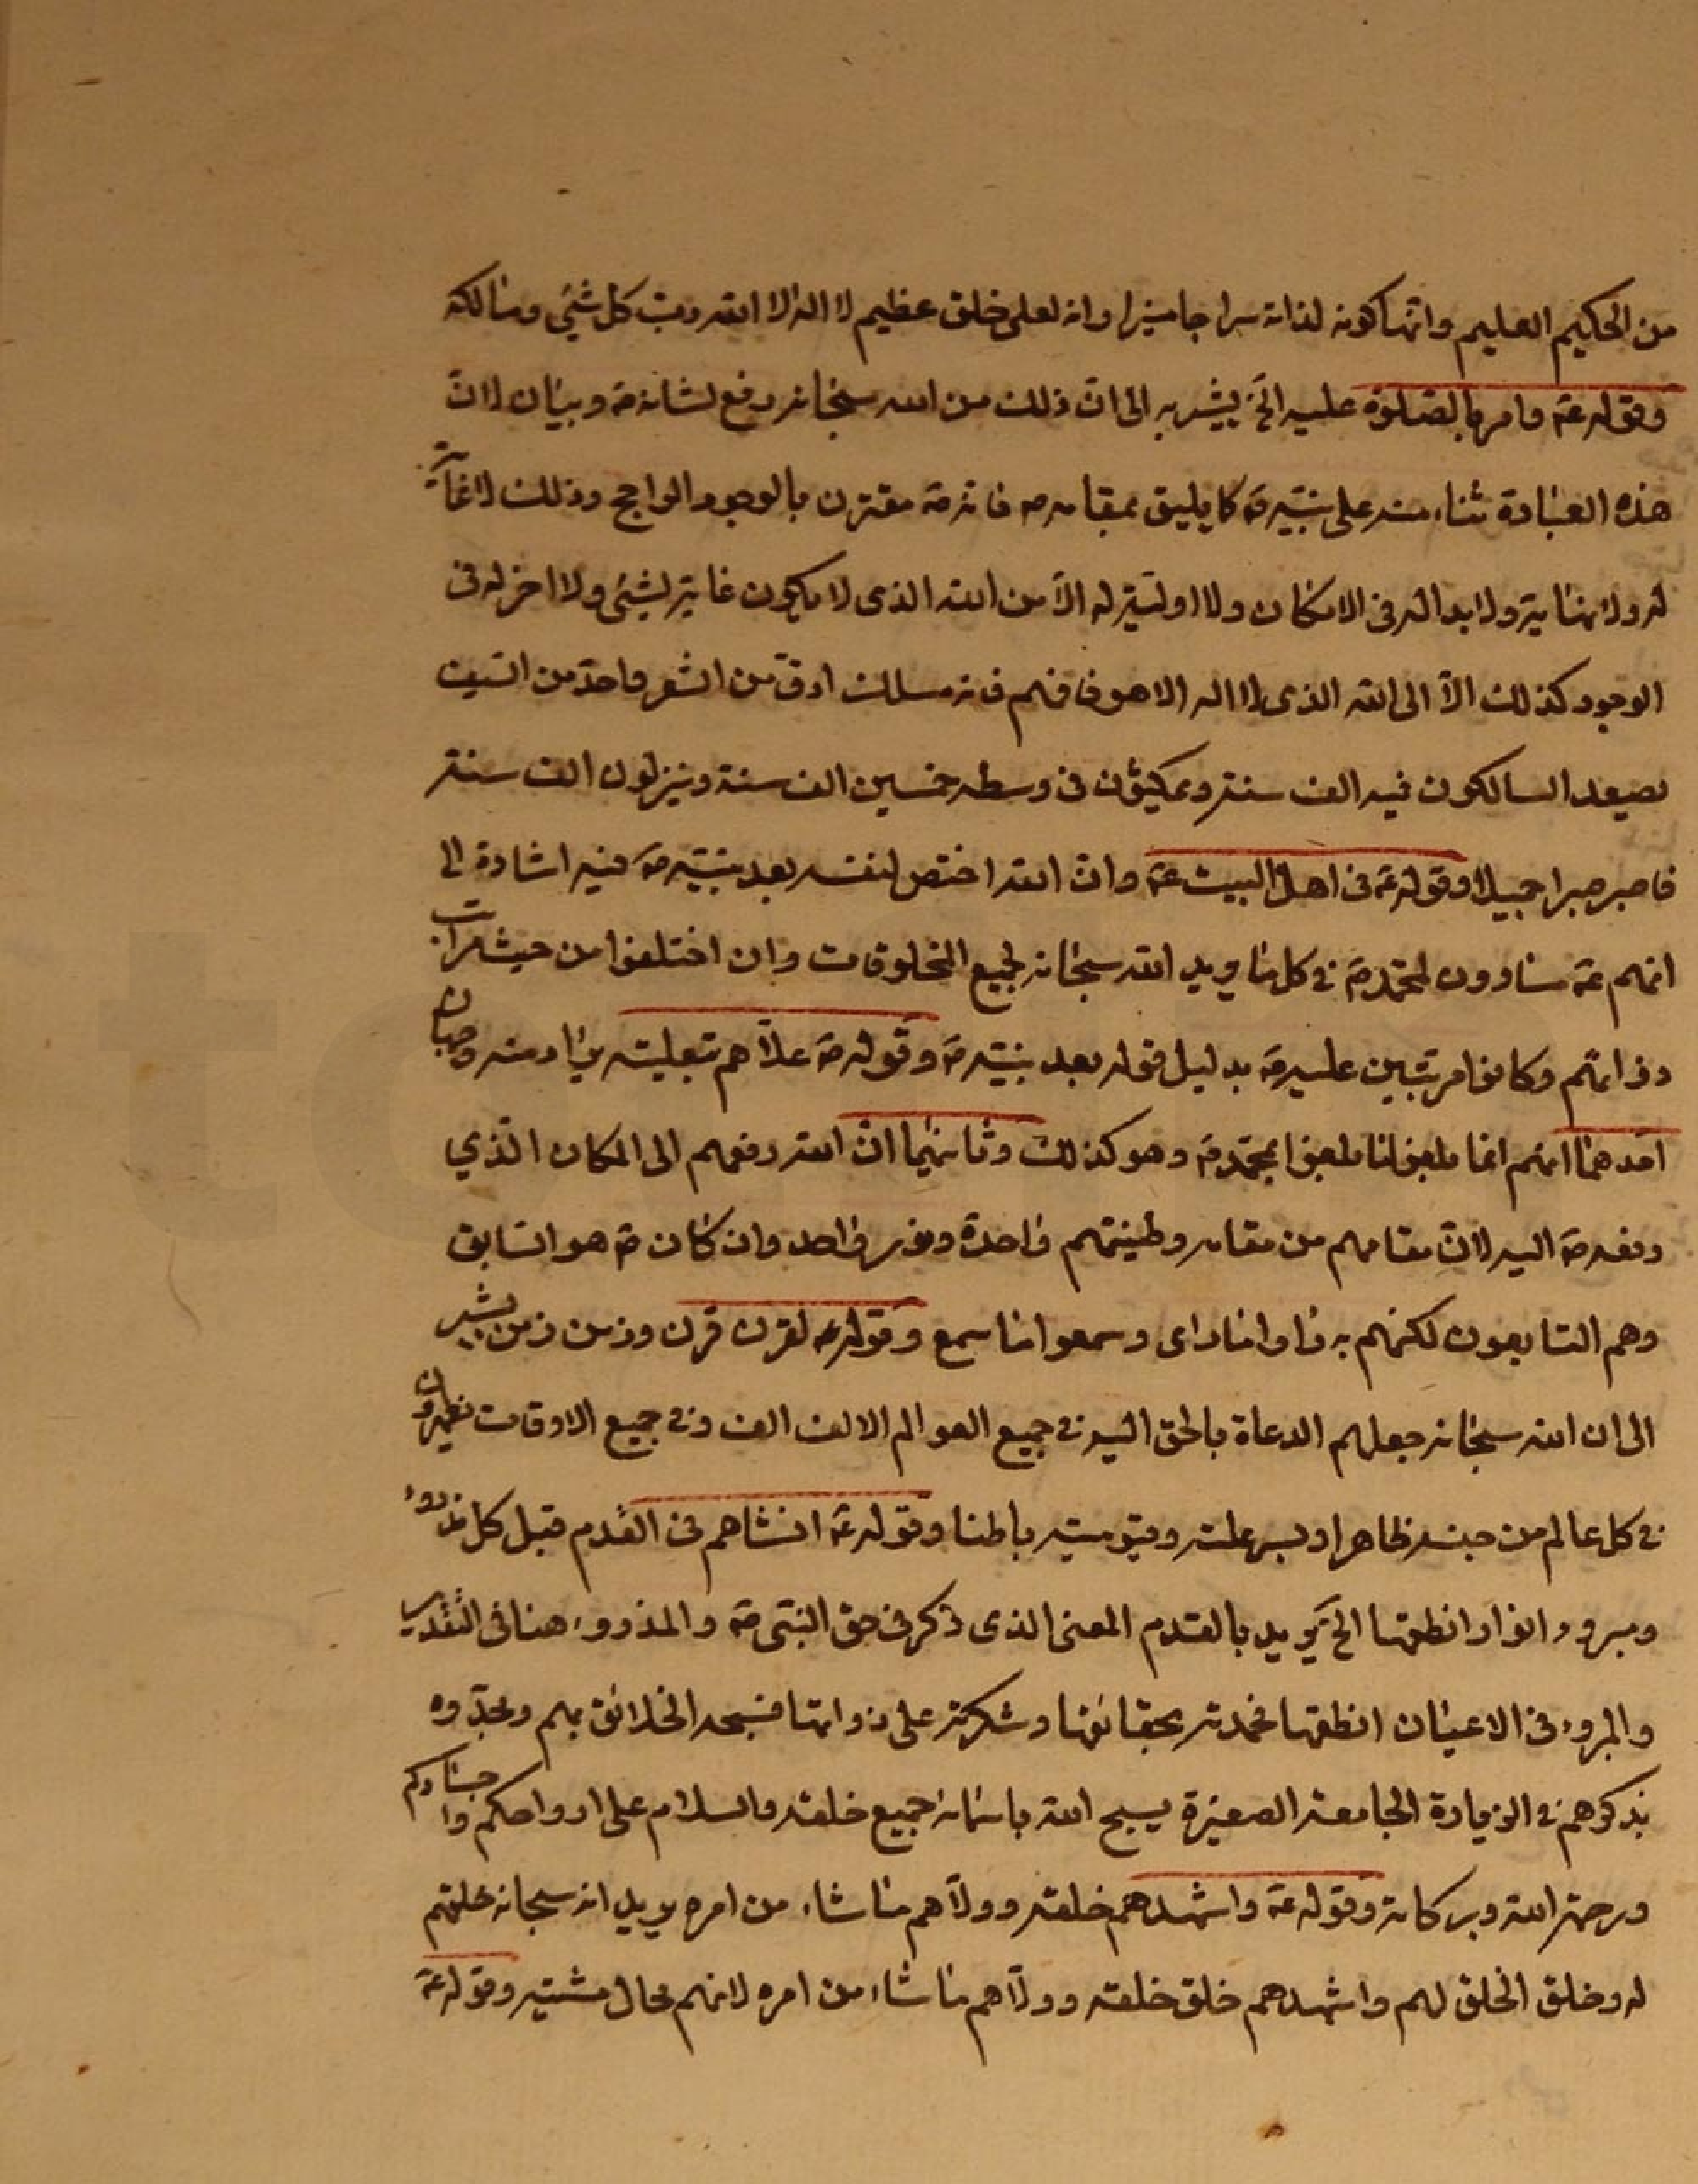 من الحكيم العليم وانها كونه لذاته سراجا منيرا وانه لعلى خلق عظيم لا اله الا الله رب كل شئ ومالكه
وقوله عم وامر بالصلوة عليه الخ يشير به الى ان ذلك من الله سبحانه رفع لشانه ص وبيان لان
هذه العبادة ثناء منه على نبيه ص كما يليق بمقامه ص فانه ص مقترن بالوجود الراجح وذلك لا غاية
له ولا نهاية ولا بدا له فى الامكان ولا اولية له الا من الله الذى لا يكون غاية لشئ ولا اخر له فى
الوجود كذلك الا الى الله الذى لا اله الا هو فافهم فانه مسلك ادق من الشعر واحد من السيف
يصعد السالكون فيه الف سنة ويمكثون فى وسطه خمسين الف سنة وينزلون الف سنة
فاصبر صبرا جميلا وقوله عم فى اهل البيت عم وان الله اختص لنفسه بعد نبيه ص فيه اشارة الى
انهم عم مساوون لمحمد ص فى كل ما يريد الله سبحانه لجميع المخلوقات وان اختلفوا من حيث مراتب
ذواتهم وكانوا مرتبين عليه ص بدليل قوله بعد نبيه ص وقوله ص علاهم بتعليته يراد منه وجهان
احدهما انهم انما بلغوا ما بلغوا بمحمد ص وهو كذلك وثانيهما ان الله رفعهم الى المكان الذي
رفعه ص اليه لان مقامهم من مقامه وطينتهم واحدة ونور واحد وان كان ص هو السابق
وهم التابعون لكنهم به راوا ما راى وسمعوا ما سمع وقوله عم لقرن قرن وزمن زمن يشير
الى ان الله سبحانه جعلهم الدعاة بالحق اليه فى جميع العوالم الالف الف وفى جميع الاوقات يظهرون
فى كل عالم من جنسه ظاهرا وبسر علته وقيوميته باطنا وقوله عم انشاهم فى القدم قبل كل مذروء
ومبروء انوارا انطقها الخ يريد بالقدم المعنى الذى ذكر فى حق النبى ص والمذروء هنا فى التقدير
والمبروء فى الاعيان انطقها فحمدته بحقائقها وشكرته على ذواتها فسبحه الخلائق بهم ومجدوه
بذكرهم فى الزيارة الجامعة الصغيرة يسبح الله باسمائه جميع خلقه والسلام على ارواحكم واجسادكم
ورحمة الله وبركاته وقوله عم واشهدهم خلقه وولاهم ما شاء من امره يريد انه سبحانه خلقهم
له وخلق الخلق لهم واشهدهم خلق خلقه وولاهم ما شاء من امره لانهم محال مشيته وقوله عم